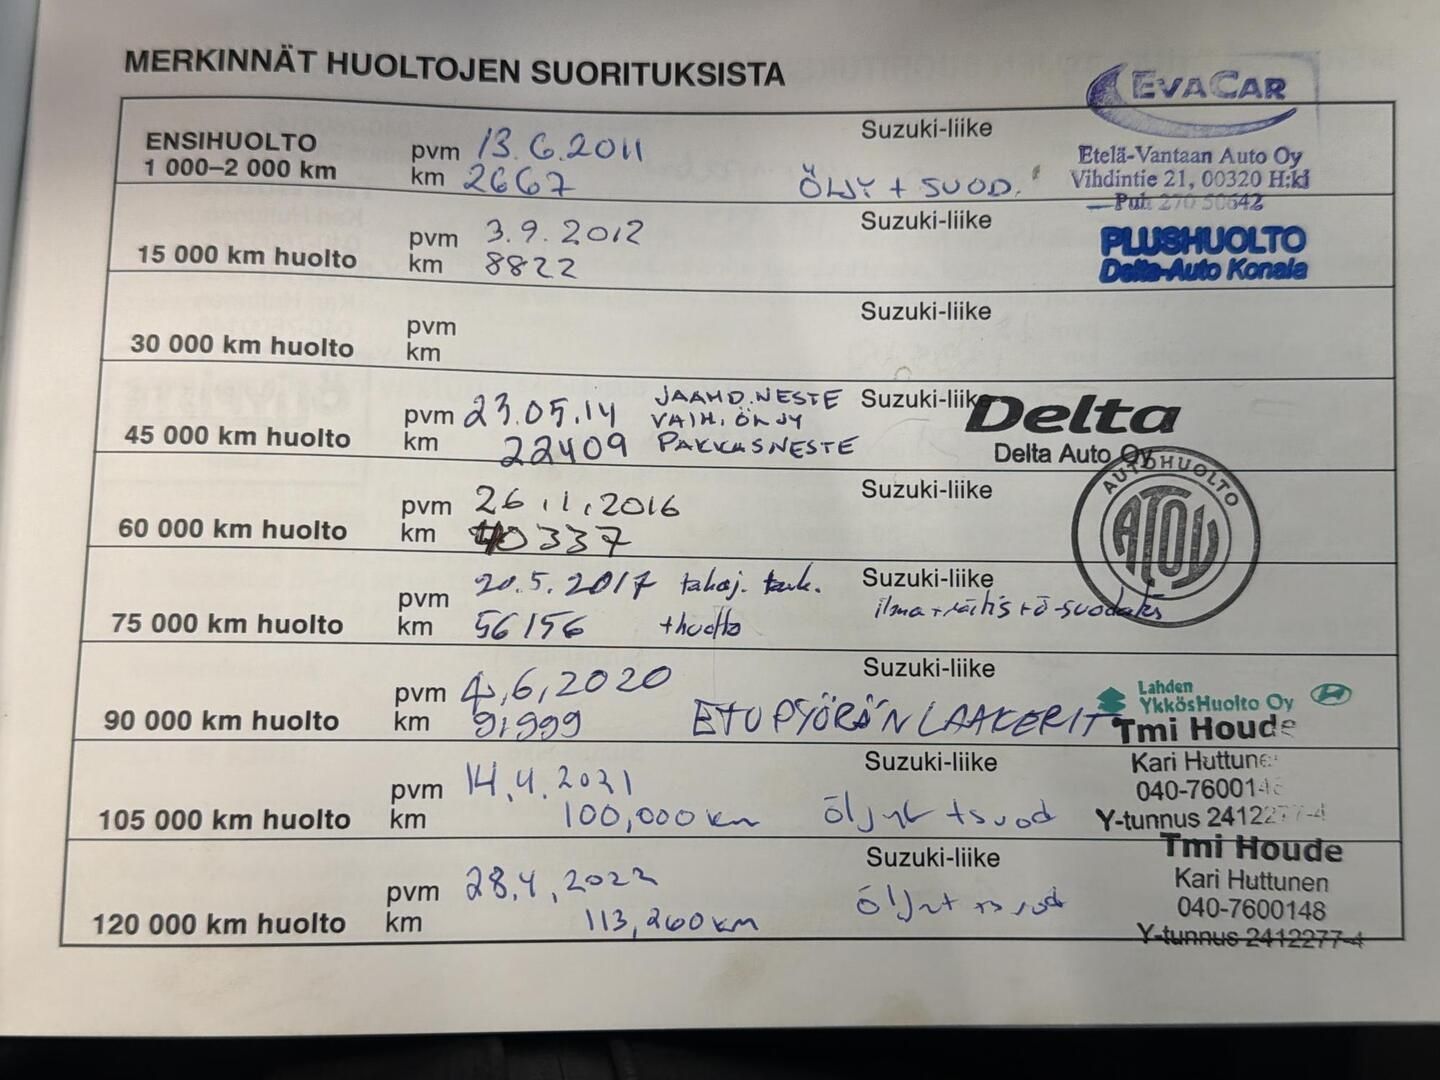 MERKINNÄT HUOLTOJEN SUORITUKSISTA
EVACAR
ENSIHUOLTO
1 000–2 000 km
pvm 13.6.2011
km 2667
ÖLJY + SUOD.
Suzuki-liike
Etelä-Vantaan Auto Oy
Vihdintie 21, 00320 H:ki
Puh 270 50642
15 000 km huolto
pvm 3.9.2012
km 8822
Suzuki-liike
PLUSHUOLTO
Delta-Auto Konala
30 000 km huolto
pvm
km
Suzuki-liike
45 000 km huolto
pvm 23.05.14
km 22409
JAAHD.NESTE
VAIH.ÖLJY
PAKKASNESTE
Suzuki-liike
Delta
Delta Auto Oy
60 000 km huolto
pvm 26.11.2016
km 40337
Suzuki-liike
AUTOHUOLTO
ATOY
75 000 km huolto
pvm 20.5.2017 takaj. tark.
km 56156 +huolto
Suzuki-liike
ilma + +ö-suodatis
90 000 km huolto
pvm 4,6,2020
km 91999
ETUPYÖRÄN LAAKERIT
Suzuki-liike
Lahden
YkkösHuolto Oy
Tmi Houde
Kari Huttunen
040-760014
Y-tunnus 2412277-4
105 000 km huolto
pvm 14.4.2021
km 100,000 km
Suzuki-liike
öljyt + suod
120 000 km huolto
pvm 28.4.2022
km 113,260 km
Suzuki-liike
öljyt + suod
Tmi Houde
Kari Huttunen
040-7600148
Y-tunnus 2412277-4